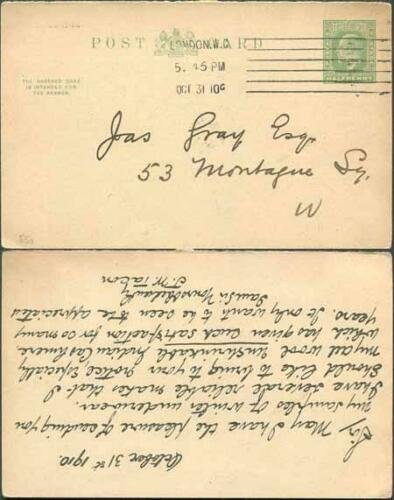 POST CARD
THE ANNEXED CARD
IS INTENDED FOR
THE ANSWER.
LONDON.W.C.
5. 45 PM
OCT 31 10
HALFPENNY
Jas Gray Esq
53 Montague Sq
W
October 31st 1910.
Sir,
May I have the pleasure of sending you
my samples of winter underwear.
I have several reliable makes that I
should like to bring to your notice Especially
my all wool Unshrinkable Indian Cashmere
which has given such satisfaction for so many
years. It only wants to be seen to be appreciated
I am Sir Yours Obediently